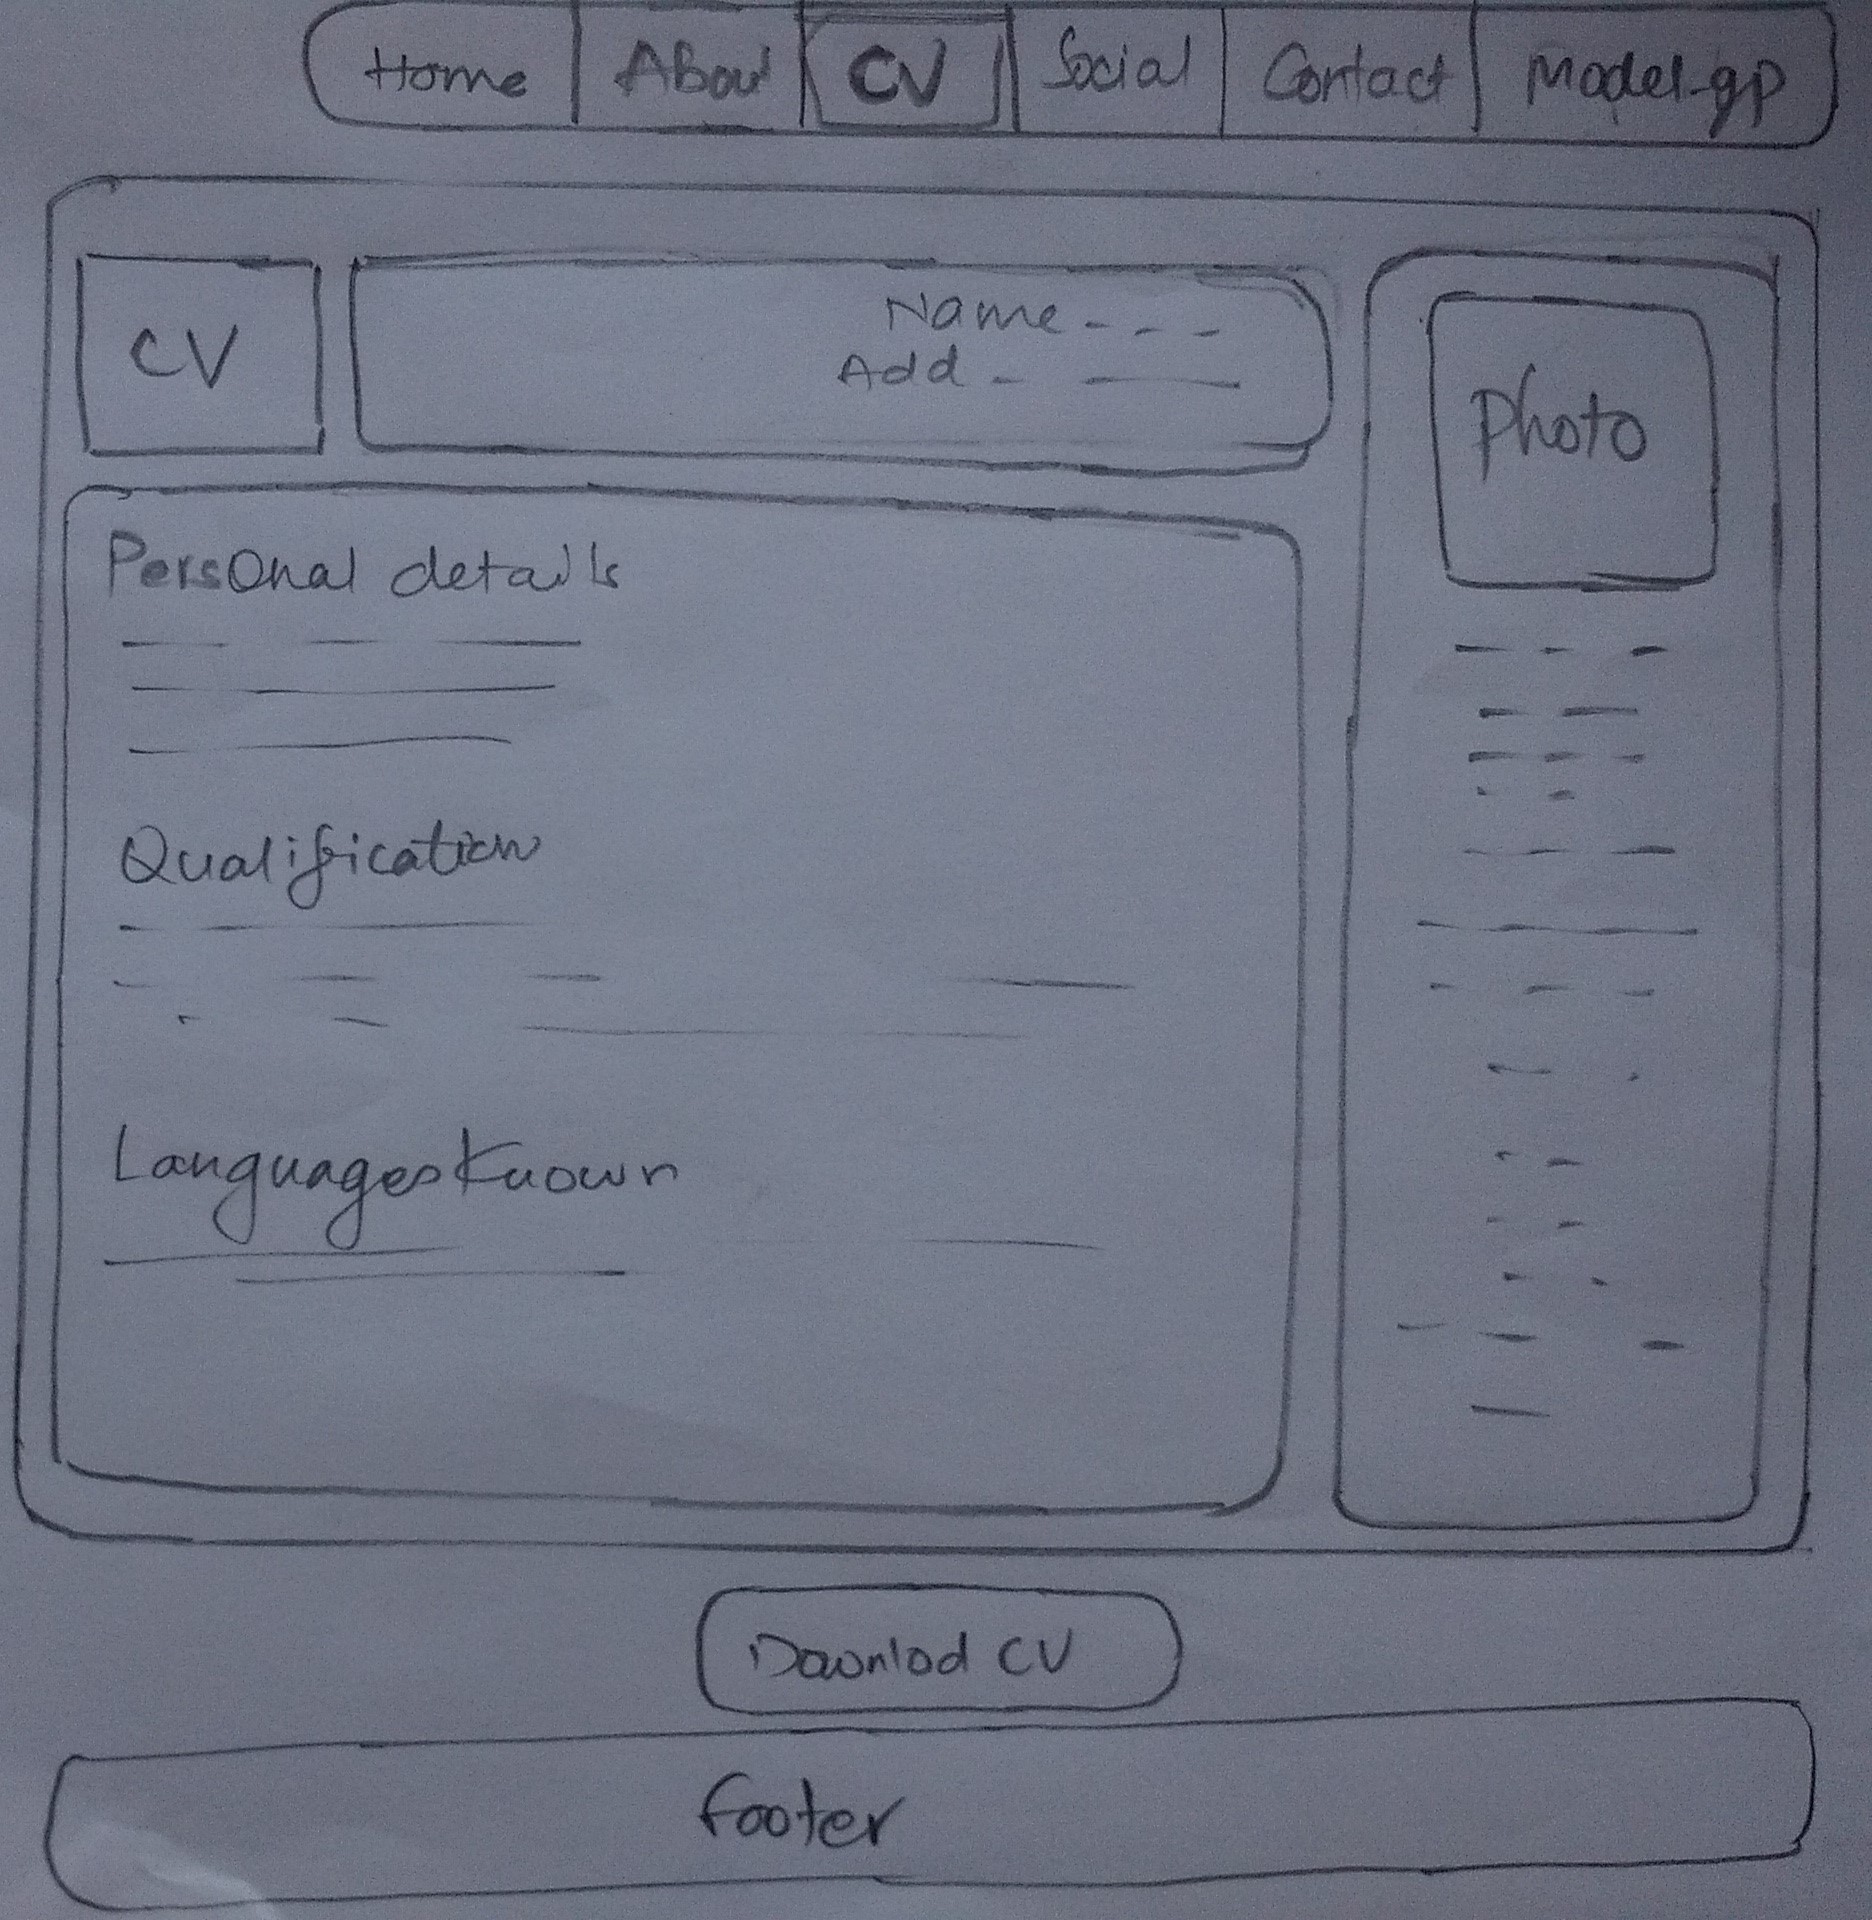 Home About CV Social Contact Model-gp
CV
Name - - -
Add -
Photo
Personal details
Qualification
Languages Known
Downlod CV
footer